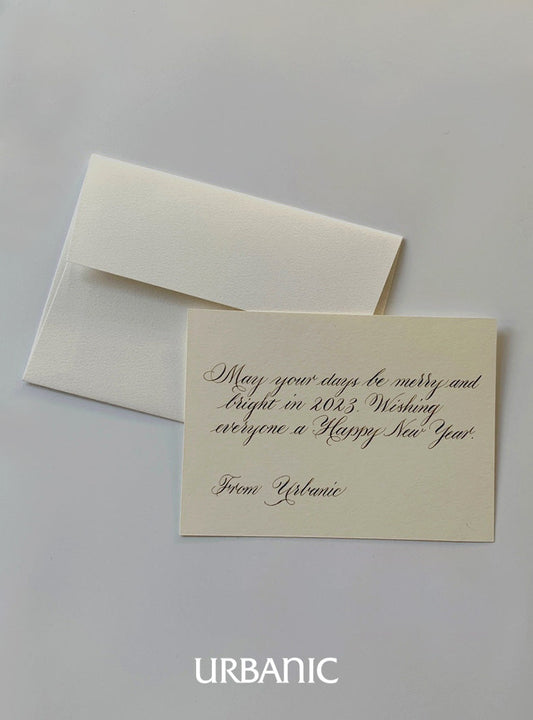 May your days be merry and
bright in 2023. Wishing
everyone a Happy New Year.
From Urbanic
URBANIC